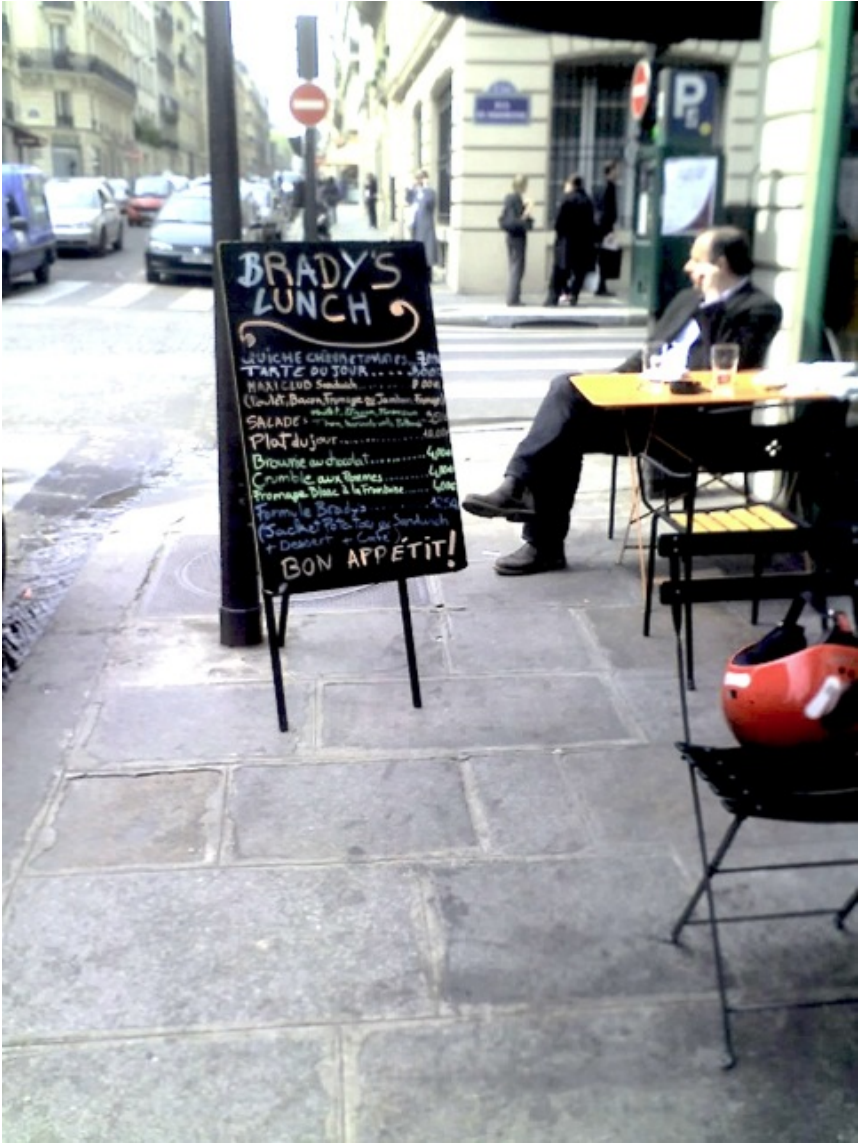 P
BRADY'S
LUNCH
QUICHE CHÈVRE TOMATES
TARTE DU JOUR........
MAXI CLUB Sandwich........ 8.00€
(Poulet, Bacon, Fromage ou Jambon Fromage)
SALADES
Plat du jour..............
Brownie au chocolat........ 4,00€
Crumble aux Pommes........ 4,00€
Fromage Blanc à la Framboise........ 4,00€
Formule Brady's
(Jacket Potatou ou Sandwich
+ Dessert + Café)
BON APPÉTIT!